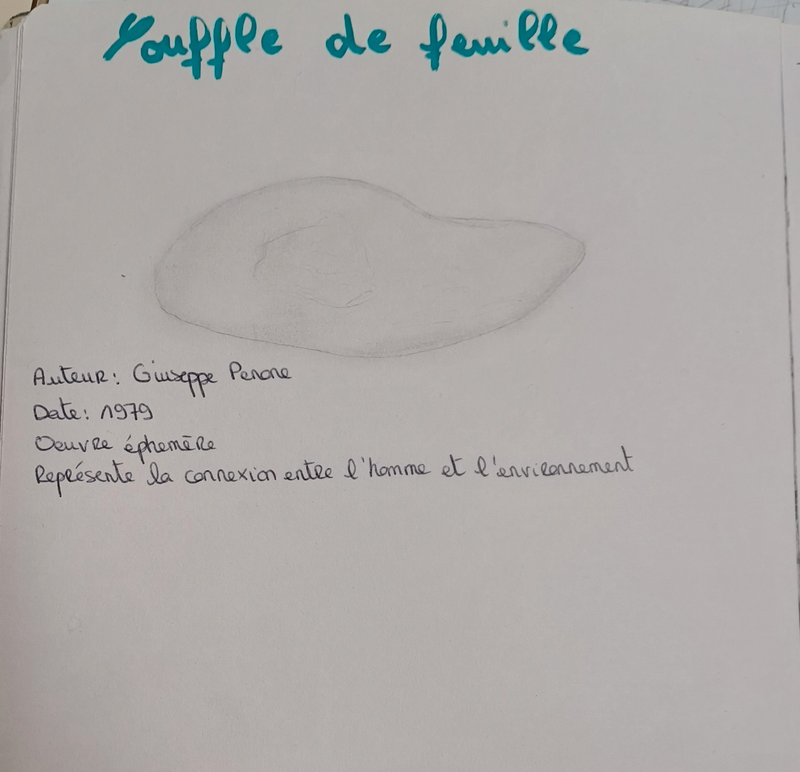 Souffle de feuille
Auteur: Giuseppe Penone
Date: 1979
Oeuvre éphemēre
Représente la connexion entre l'homme et l'environnement